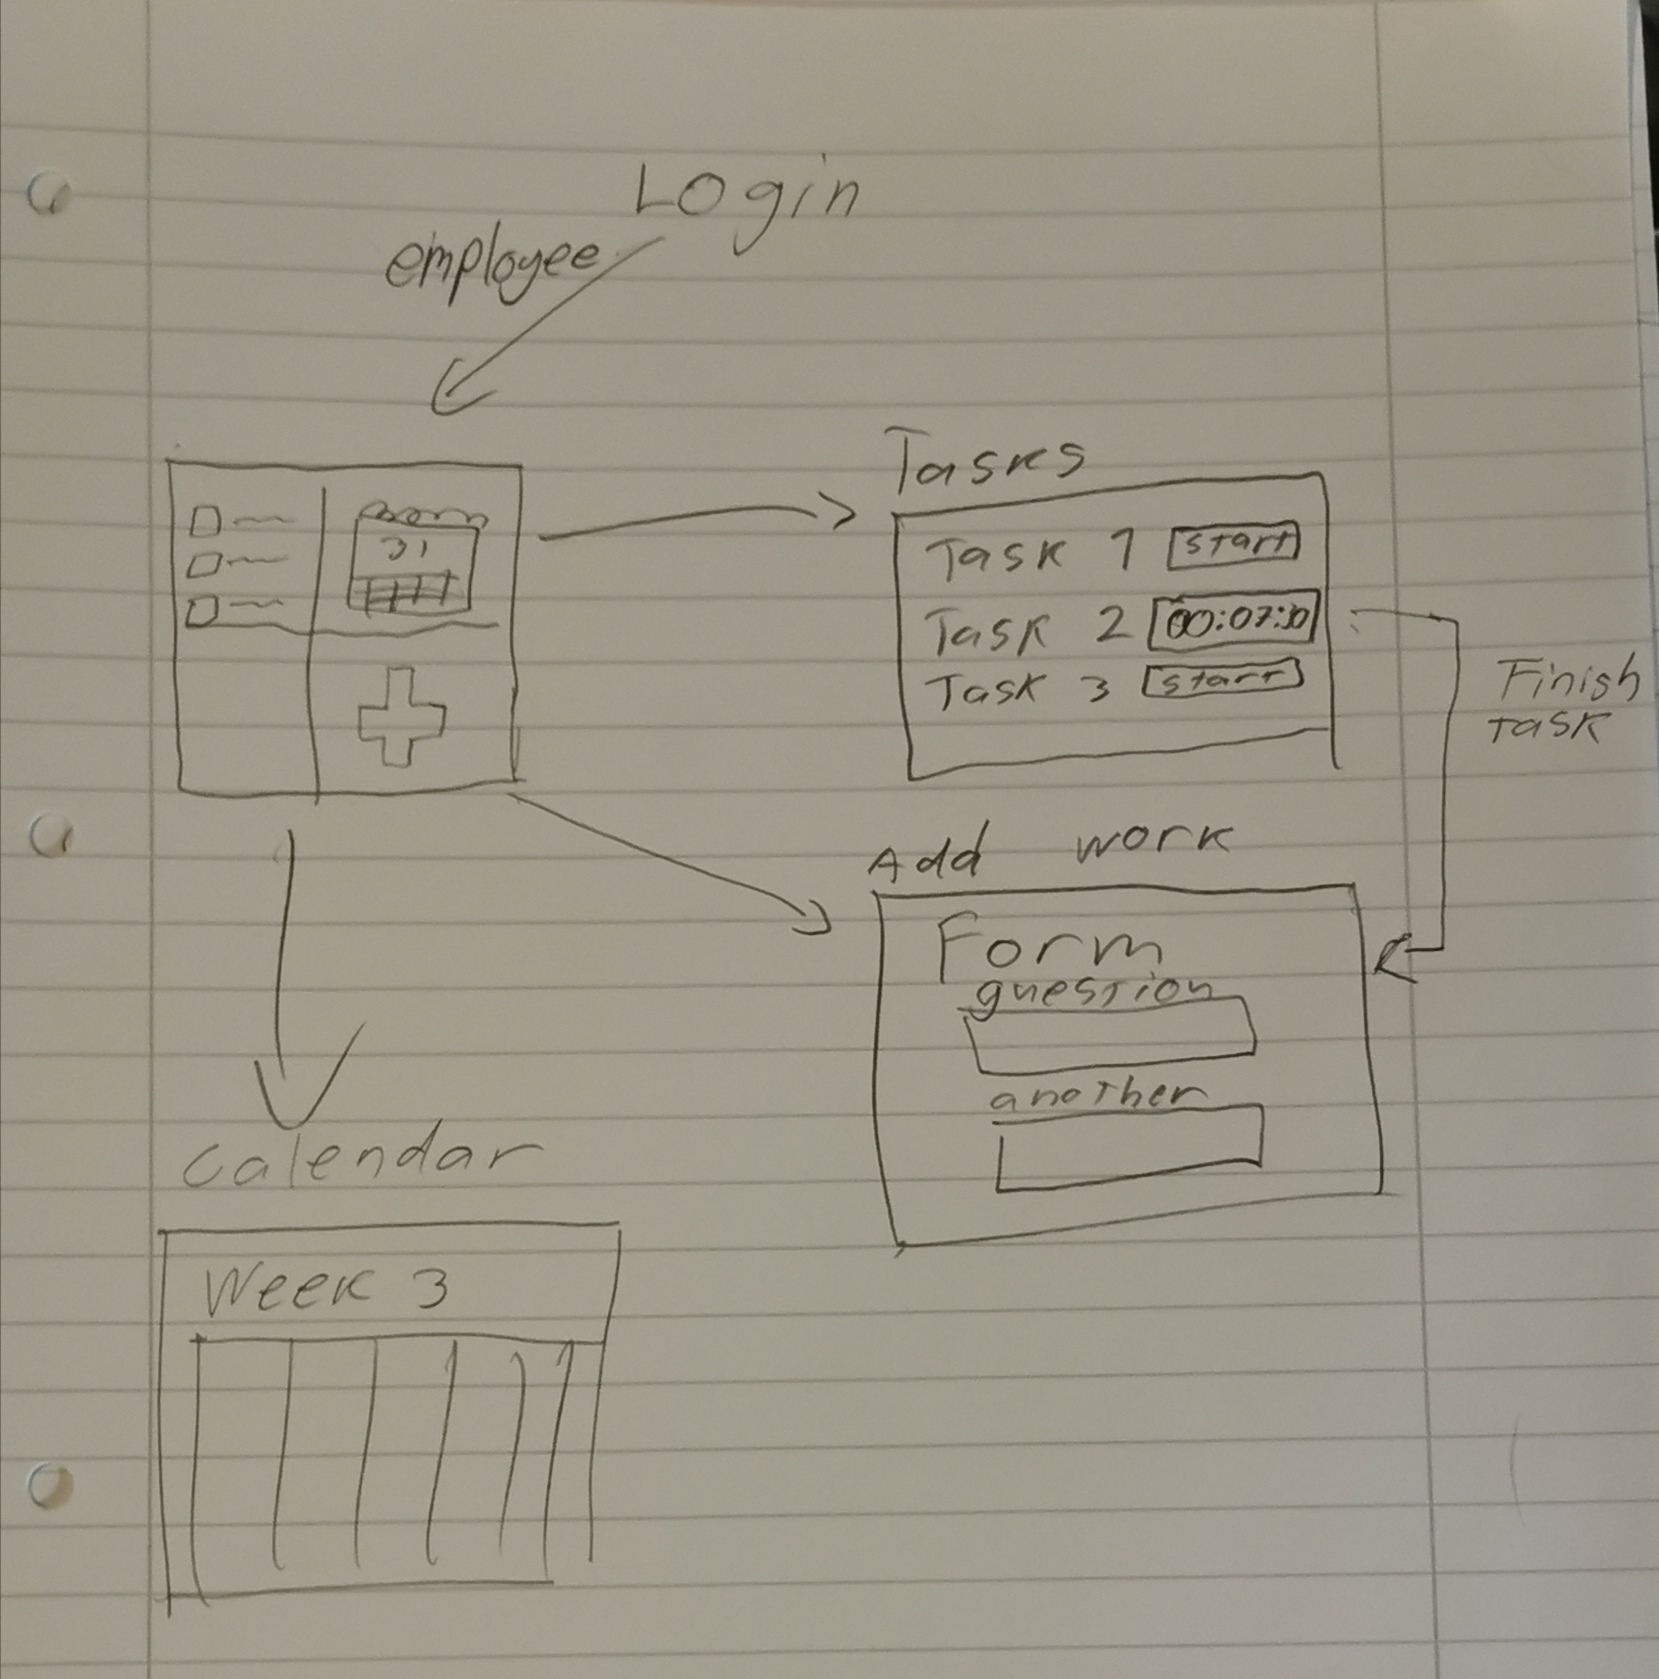 Login
employee
31
Tasks
Task 1 start
Task 2 00:07:30
Task 3 start
Finish
Task
Add work
Form
question
another
Calendar
Week 3